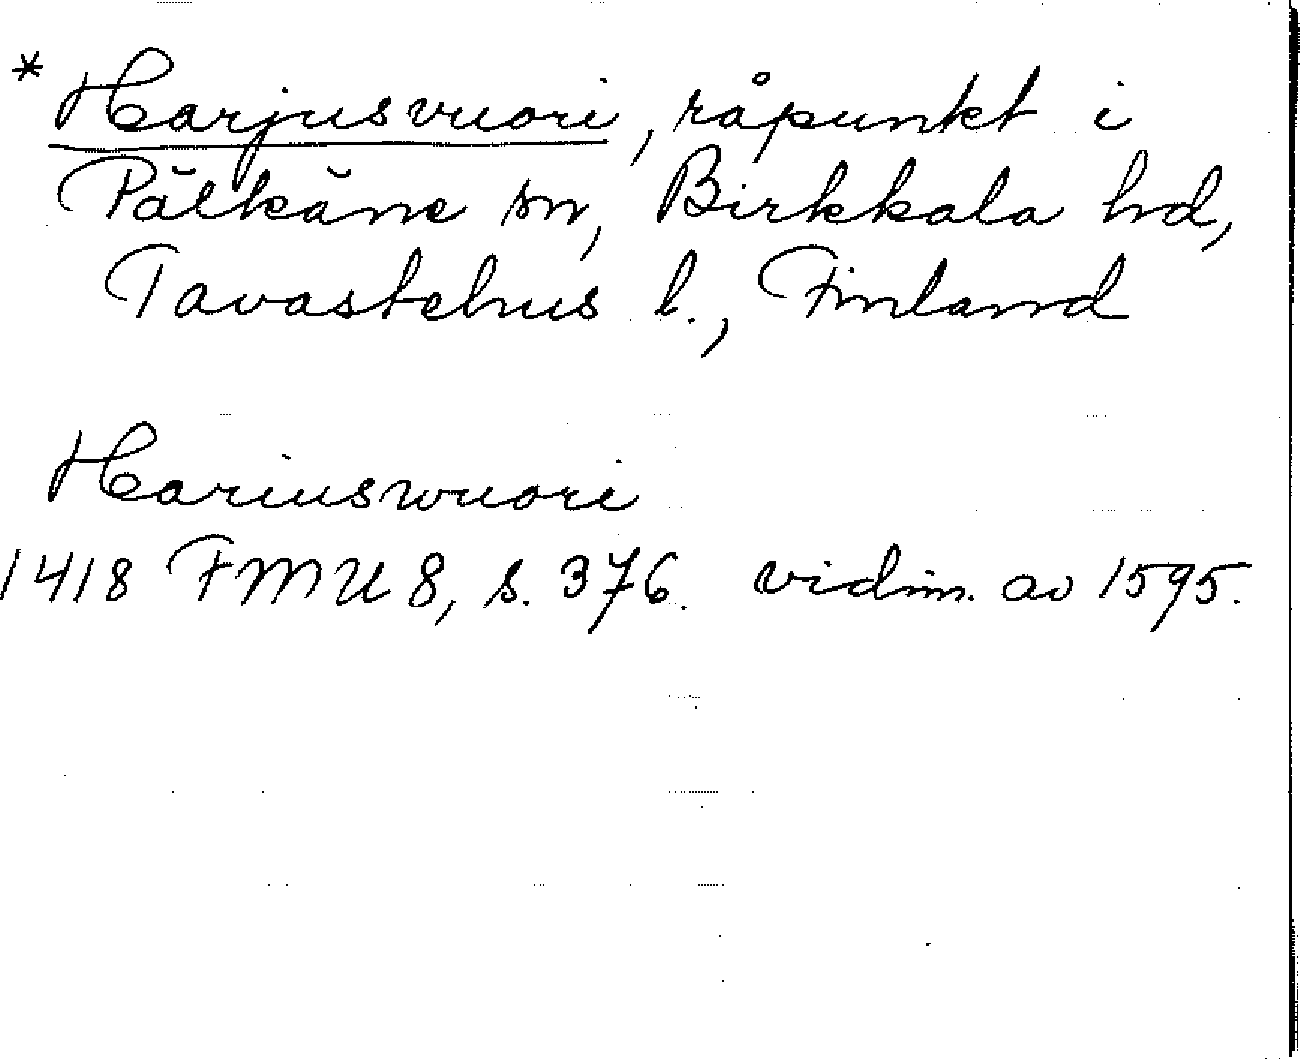 * Harjusvuori, råpunkt i
Pälkäne sn, Birkkala hd,
Tavastehus l., Finland
Hariuswuori
1418 FMU 8, s. 376. vidim. av 1595.